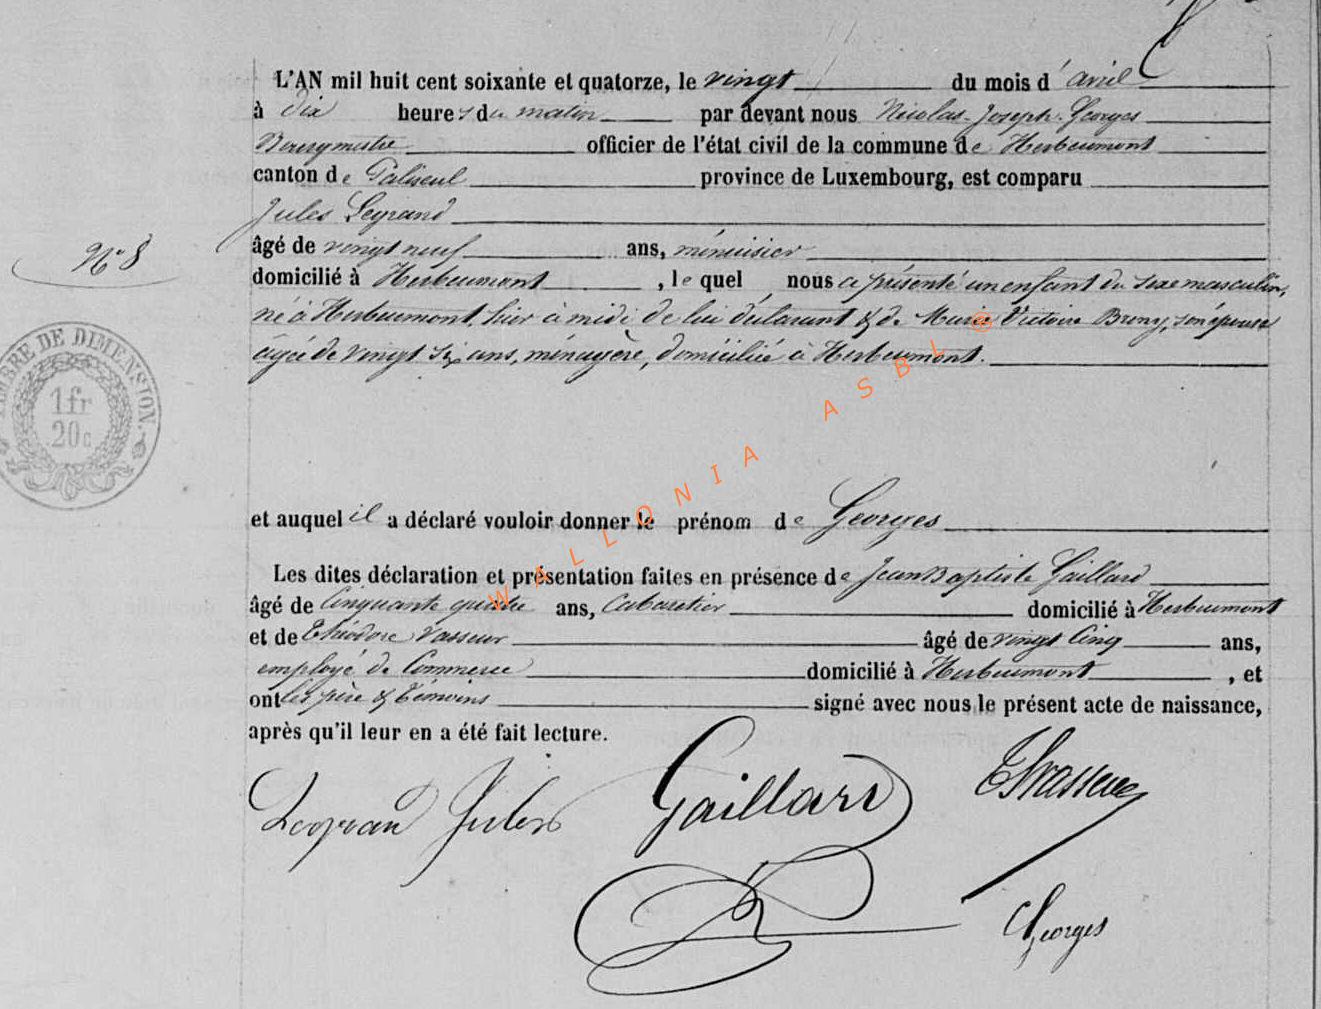 L'AN mil huit cent soixante et quatorze, le vingt du mois d'avril
à dix heures du matin par devant nous Nicolas-Joseph-Georges
Bourgmestre officier de l'état civil de la commune de Herbeumont
canton de Paliseul province de Luxembourg, est comparu
Jules Legrand
N° 8
âgé de vingt neuf ans, ménuisier
domicilié à Herbeumont, le quel nous a présenté un enfant du sexe masculin,
né à Herbeumont, hier à midi de lui déclarant & de Marie Victoire Brony, son épouse
âgée de vingt six ans, ménagère, domiciliée à Herbeumont.
TIMBRE DE DIMENSION.
1fr
20c
et auquel il a déclaré vouloir donner le prénom de Georges
Les dites déclaration et présentation faites en présence de Jean Baptiste Gaillard
âgé de Cinquante quatre ans, Cabaretier domicilié à Herbeumont
et de Théodore Vasseur âgé de vingt Cinq ans,
employé de Commerce domicilié à Herbeumont, et
ont les père & témoins signé avec nous le présent acte de naissance,
après qu'il leur en a été fait lecture.
Legrand Jules Gaillard Th Vasseur
Georges
WALLONIA ASBL @